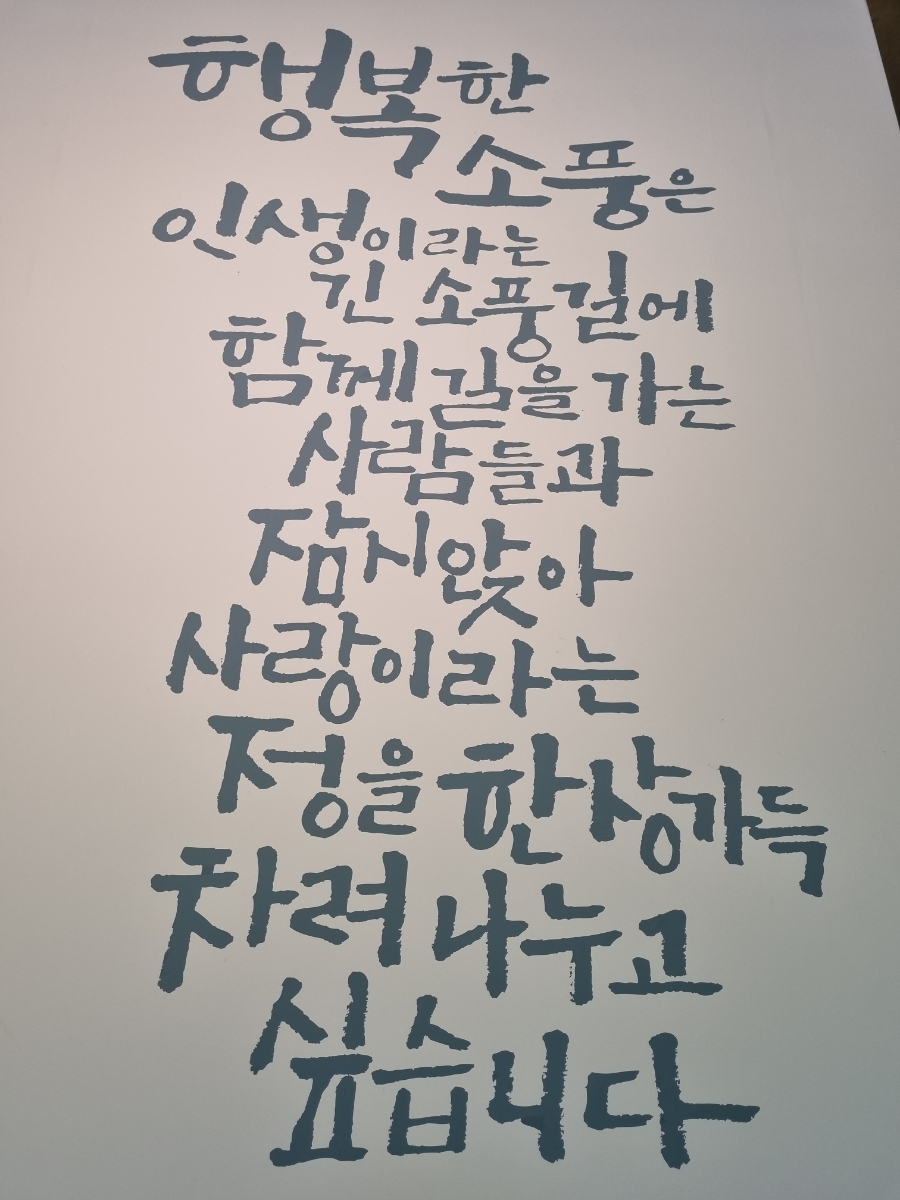 행복한
소풍은
인생이라는
긴 소풍길에
함께 길을 가는
사람들과
잠시 앉아
사랑이라는
정을 한상가득
차려 나누고
싶습니다